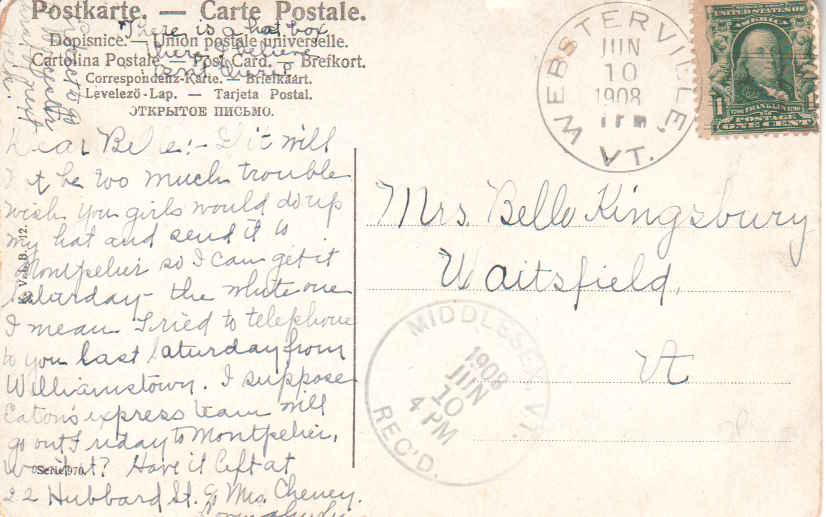 Postkarte. — Carte Postale.
Dopisnice. — Union postale universelle.
Cartolina Postale. — Post Card. — Brefkort.
Correspondenz-Karte. — Briefkaart.
Levelező-Lap. — Tarjeta Postal.
ОТКРЫТОЕ ПИСЬМО.
There is a hat box
there I believe
Dear Belle:- If it will
not be too much trouble
wish you girls would do up
my hat and send it to
Montpelier so I can get it
Saturday - the white one
I mean. I tried to telephone
to you last Saturday from
Williamstown. I suppose
Eaton's express team will
go out Friday to Montpelier,
won't it? Have it left at
22 Hubbard St. % Mrs. Cheney.
Serie 970.
WEBSTERVILLE, VT.
JUN
10
1908
1 PM
1 ONE CENT 1
POSTAGE
Mrs. Belle Kingsbury
Waitsfield,
Vt
MIDDLESEX, VT.
1908
JUN
10
4 PM
REC'D.